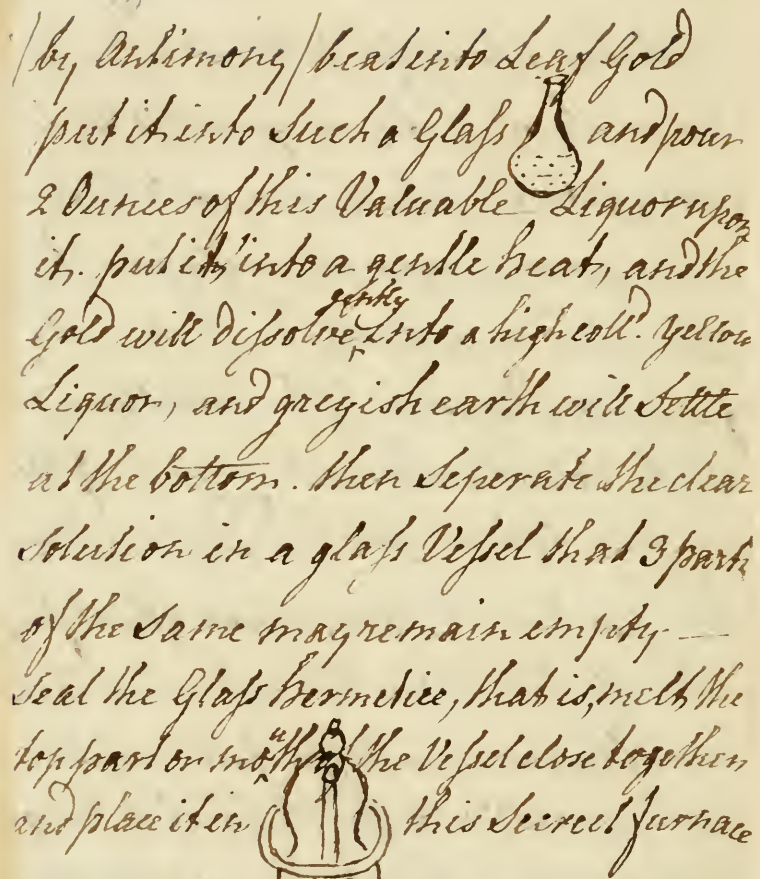 /by Antimony/ beat into Leaf Gold
put it into Such a Glass and pour
2 Ounces of this Valuable Liquor upon
it. put it into a gentle heat, and the
gently
Gold will dissolve, Into a high coll.d yellow
Liquor, and greyish earth will Settle
at the bottom. then Seperate the clear
Solution in a glass Vessel that 3 parts
of the Same may remain empty —
Seal the Glass hermetice, that is, melt the
top part or mouth of the Vessel close together
and place it in this Secreet furnace